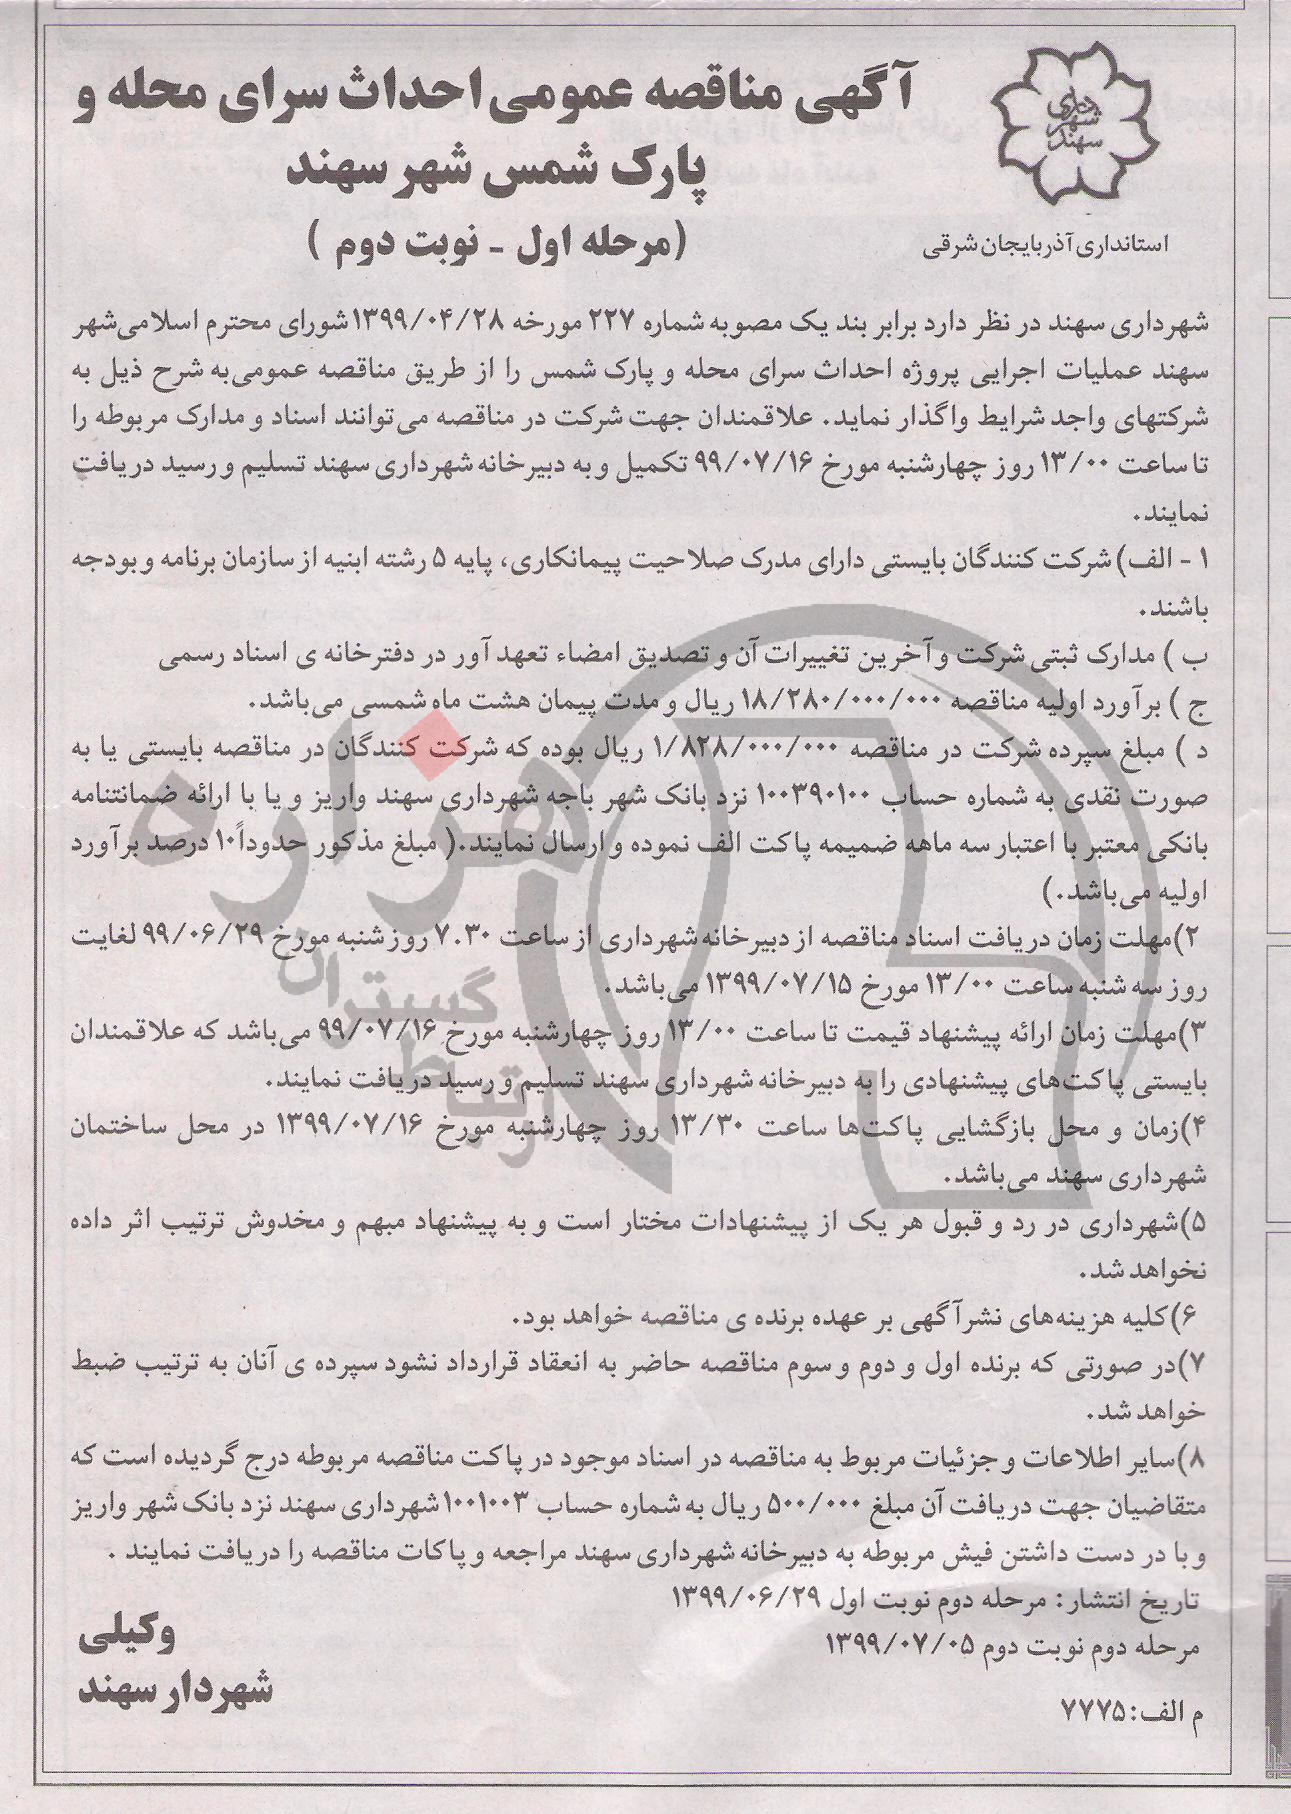 شهرداری
سهند
استانداری آذربایجان شرقی
آگهی مناقصه عمومی احداث سرای محله و
پارک شمس شهر سهند
(مرحله اول - نوبت دوم )
شهرداری سهند در نظر دارد برابر بند یک مصوبه شماره ۲۲۷ مورخه ۱۳۹۹/۰۴/۲۸ شورای محترم اسلامی‌شهر
سهند عملیات اجرایی پروژه احداث سرای محله و پارک شمس را از طریق مناقصه عمومی‌به شرح ذیل به
شرکتهای واجد شرایط واگذار نماید. علاقمندان جهت شرکت در مناقصه می‌توانند اسناد و مدارک مربوطه را
تا ساعت ۱۳/۰۰ روز چهارشنبه مورخ ۹۹/۰۷/۱۶ تکمیل و به دبیرخانه شهرداری سهند تسلیم و رسید دریافت
نمایند.
۱ - الف) شرکت کنندگان بایستی دارای مدرک صلاحیت پیمانکاری، پایه ۵ رشته ابنیه از سازمان برنامه و بودجه
باشند.
ب ) مدارک ثبتی شرکت و آخرین تغییرات آن و تصدیق امضاء تعهد آور در دفترخانه ی اسناد رسمی
ج ) برآورد اولیه مناقصه ۱۸/۲۸۰/۰۰۰/۰۰۰ ریال و مدت پیمان هشت ماه شمسی می‌باشد.
د ) مبلغ سپرده شرکت در مناقصه ۱/۸۲۸/۰۰۰/۰۰۰ ریال بوده که شرکت کنندگان در مناقصه بایستی یا به
صورت نقدی به شماره حساب ۱۰۰۳۹۰۱۰۰ نزد بانک شهر باجه شهرداری سهند واریز و یا با ارائه ضمانتنامه
بانکی معتبر با اعتبار سه ماهه ضمیمه پاکت الف نموده و ارسال نمایند.( مبلغ مذکور حدوداً ۱۰ درصد برآورد
اولیه می‌باشد.)
۲)مهلت زمان دریافت اسناد مناقصه از دبیرخانه شهرداری از ساعت ۷.۳۰ روز شنبه مورخ ۹۹/۰۶/۲۹ لغایت
روز سه شنبه ساعت ۱۳/۰۰ مورخ ۱۳۹۹/۰۷/۱۵ می‌باشد.
۳)مهلت زمان ارائه پیشنهاد قیمت تا ساعت ۱۳/۰۰ روز چهارشنبه مورخ ۹۹/۰۷/۱۶ می‌باشد که علاقمندان
بایستی پاکت‌های پیشنهادی را به دبیرخانه شهرداری سهند تسلیم و رسید دریافت نمایند.
۴)زمان و محل بازگشایی پاکت‌ها ساعت ۱۳/۳۰ روز چهارشنبه مورخ ۱۳۹۹/۰۷/۱۶ در محل ساختمان
شهرداری سهند می‌باشد.
۵)شهرداری در رد و قبول هر یک از پیشنهادات مختار است و به پیشنهاد مبهم و مخدوش ترتیب اثر داده
نخواهد شد.
۶)کلیه هزینه‌های نشر آگهی بر عهده برنده ی مناقصه خواهد بود.
۷)در صورتی که برنده اول و دوم و سوم مناقصه حاضر به انعقاد قرارداد نشود سپرده ی آنان به ترتیب ضبط
خواهد شد.
۸)سایر اطلاعات و جزئیات مربوط به مناقصه در اسناد موجود در پاکت مناقصه مربوطه درج گردیده است که
متقاضیان جهت دریافت آن مبلغ ۵۰۰/۰۰۰ ریال به شماره حساب ۱۰۰۱۰۰۳ شهرداری سهند نزد بانک شهر واریز
و با در دست داشتن فیش مربوطه به دبیرخانه شهرداری سهند مراجعه و پاکات مناقصه را دریافت نمایند .
تاریخ انتشار: مرحله دوم نوبت اول ۱۳۹۹/۰۶/۲۹
مرحله دوم نوبت دوم ۱۳۹۹/۰۷/۰۵
م الف: ۷۷۷۵
وکیلی
شهردار سهند
هزاره
گستران
ارتباط